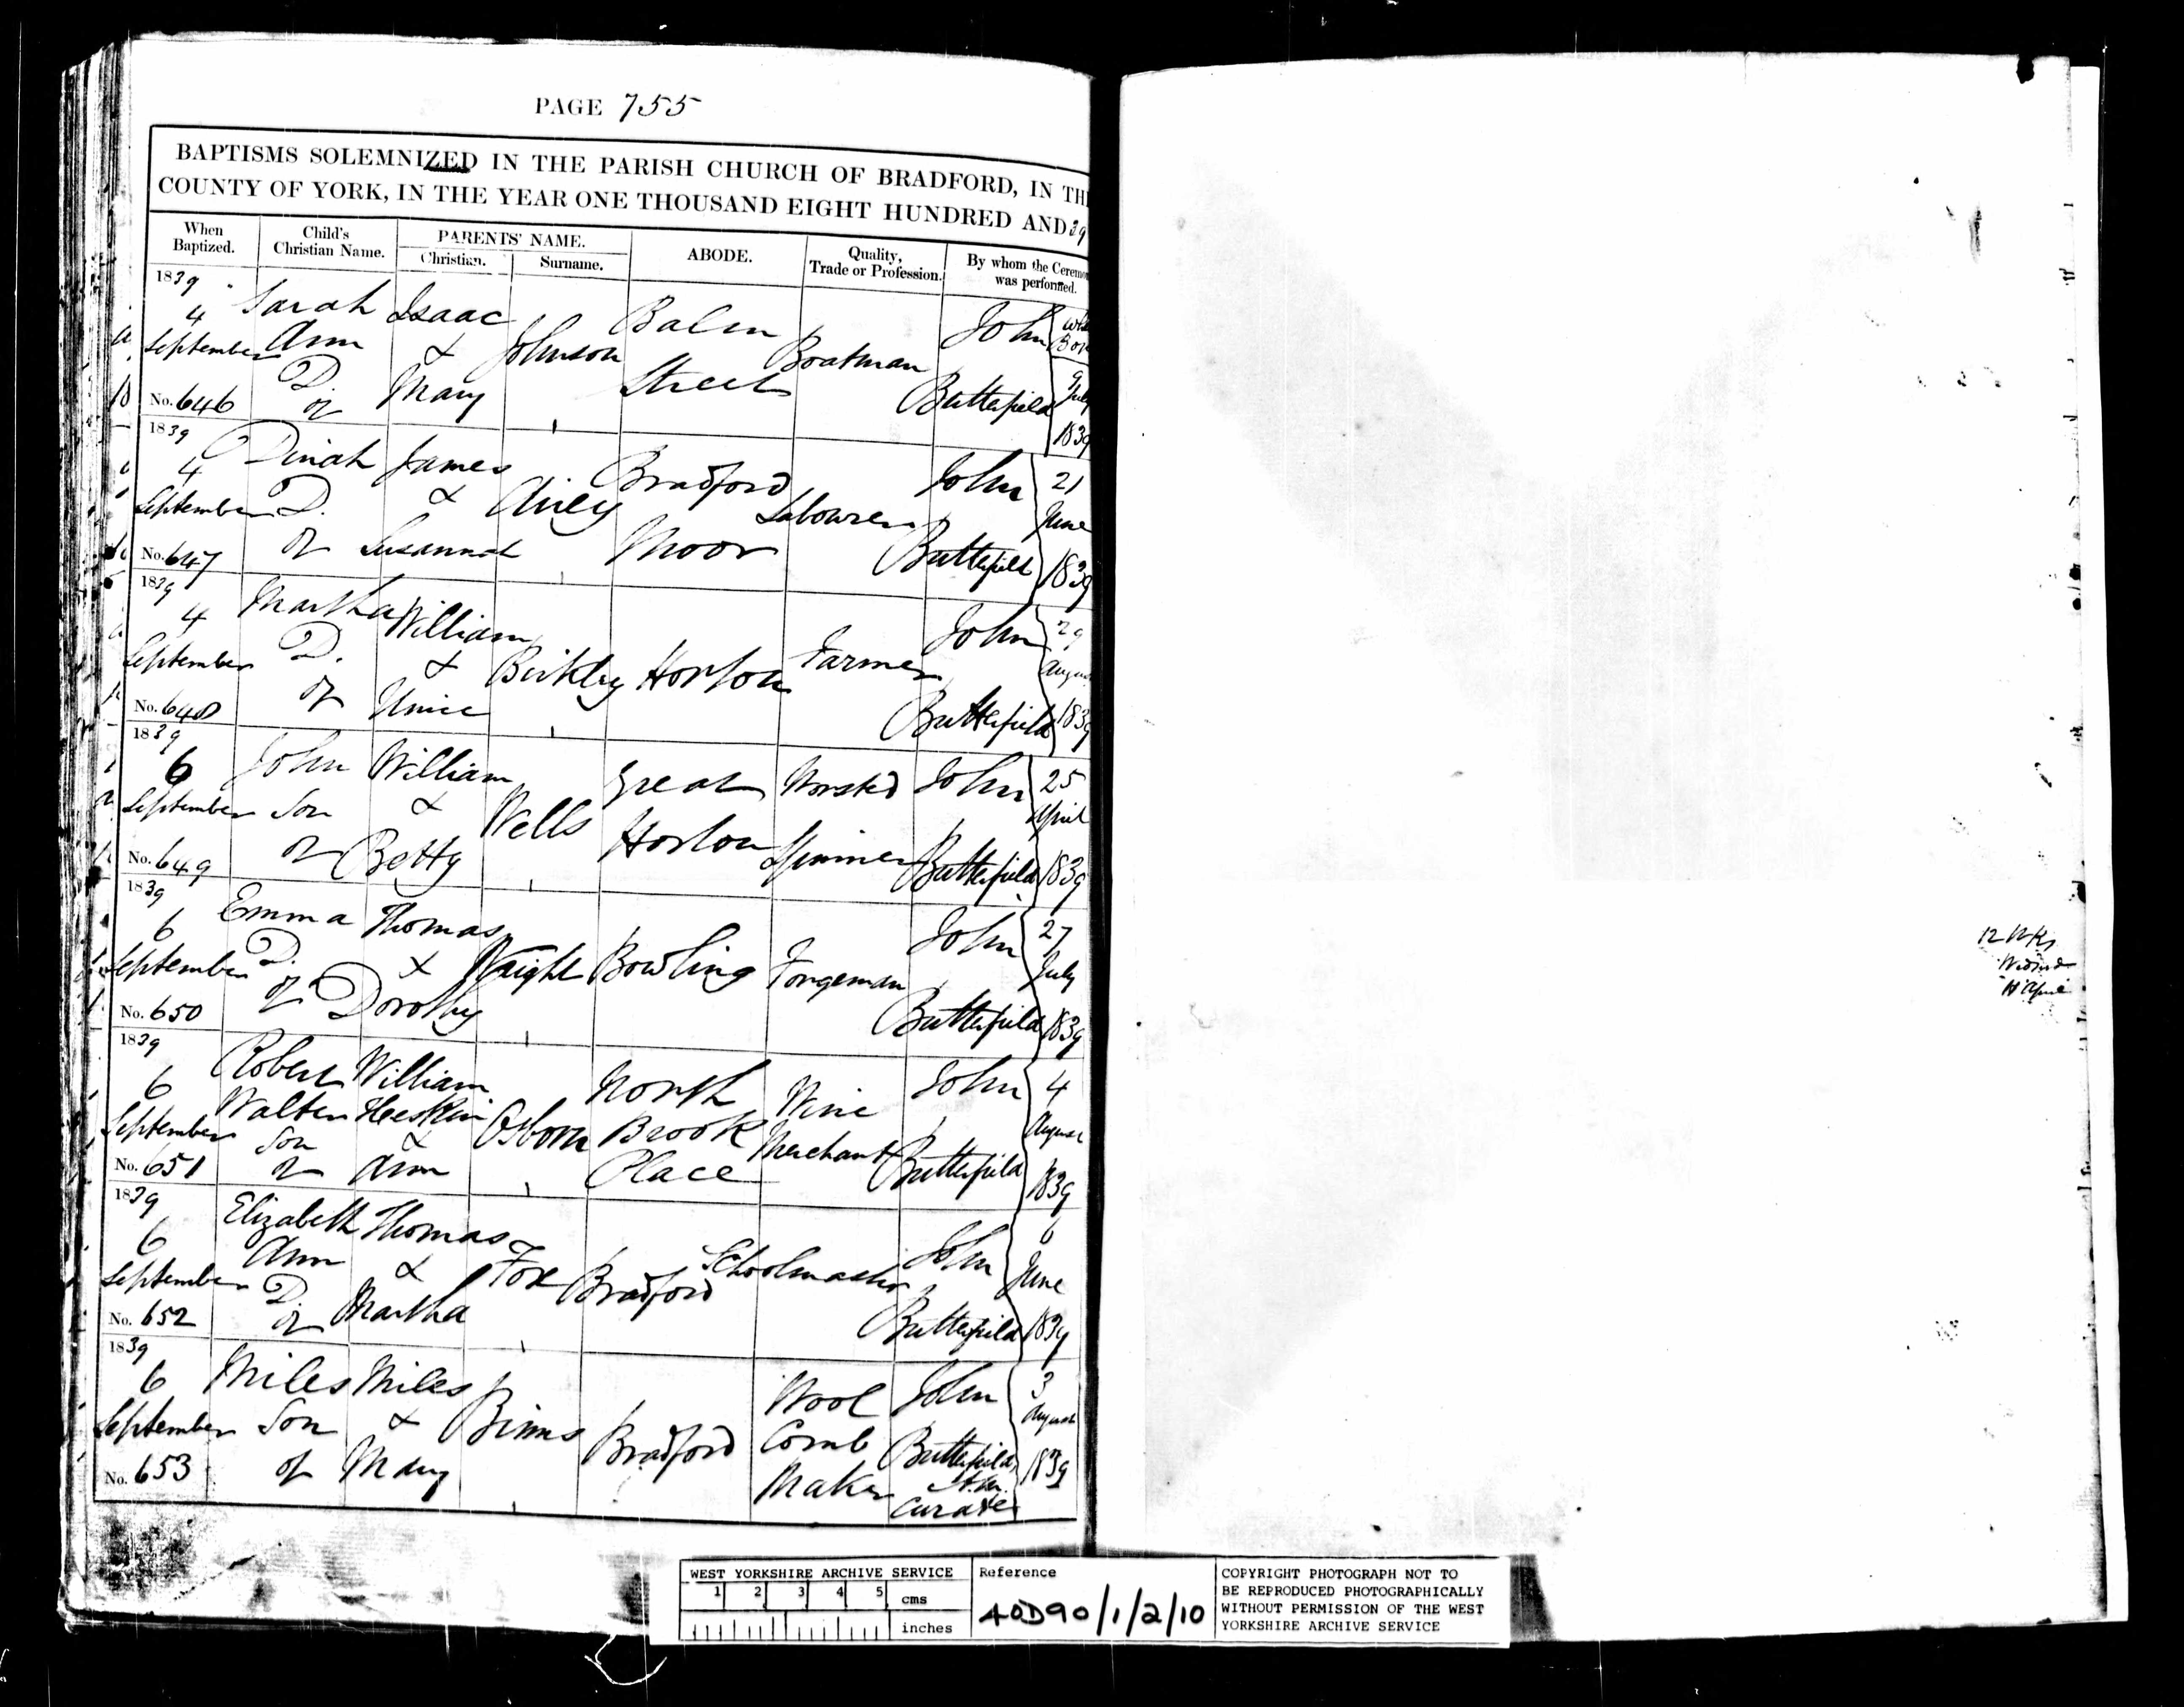 PAGE 755
BAPTISMS SOLEMNIZED IN THE PARISH CHURCH OF BRADFORD, IN THE
COUNTY OF YORK, IN THE YEAR ONE THOUSAND EIGHT HUNDRED AND 39
When Baptized. Child's Christian Name. PARENTS' NAME. Christian. Surname. ABODE. Quality, Trade or Profession. By whom the Ceremo was performed.
1839 Sarah Isaac
4 Ann & Johnson Balm Boatman John Bor
September D. Street 9 July
No. 646 of Mary Butterfield 1839
1839 Dinah James Bradford John 21
4 D. & Airey Labourer June
September of Susannah Moor Butterfield 1839
No. 647
1839 Martha William John 29
4 D. & Birkley Horton Farmer August
September of Unice Butterfield 1839
No. 648
1839 John William Great Worsted John 25
6 Son & Wells April
September of Betty Horton Spinner Butterfield 1839
No. 649
1839 Emma Thomas John 27
6 D. & Wright Bowling Forgeman July
September of Dorothy Butterfield 1839
No. 650
1839 Robert William North Wine John 4
6 Walter Heeskin Osborn Brook Merchant August
September Son & Place Butterfield 1839
No. 651 of Ann
1839 Elizabeth Thomas John 6
6 Ann & Fox Bradford Schoolmaster June
September D. Martha Butterfield 1839
No. 652 of
1839 Miles Miles Wool John 3
6 Son & Binns Bradford Comb Butterfield August
September of Mary Maker A.M. 1839
No. 653 Curate
WEST YORKSHIRE ARCHIVE SERVICE
1 2 3 4 5
cms
inches
Reference
40D90/1/2/10
COPYRIGHT PHOTOGRAPH NOT TO
BE REPRODUCED PHOTOGRAPHICALLY
WITHOUT PERMISSION OF THE WEST
YORKSHIRE ARCHIVE SERVICE